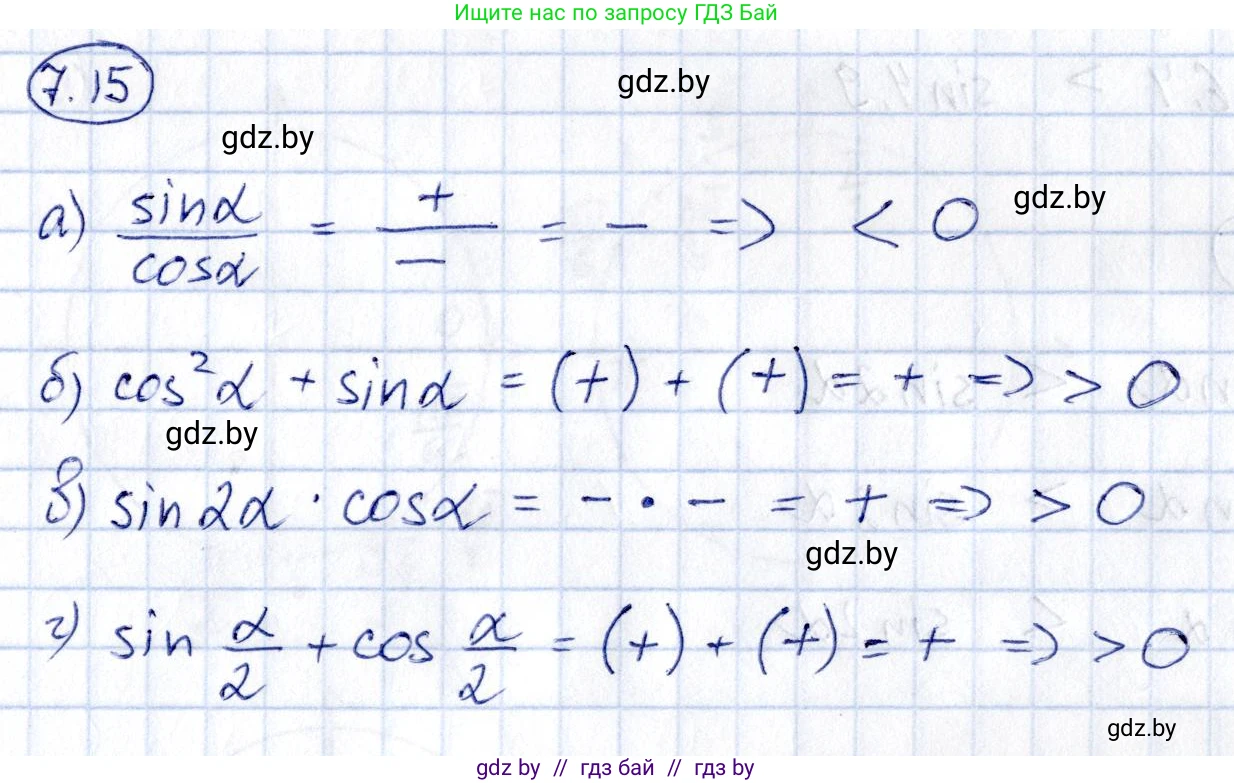 Ищите нас по запросу ГДЗ Бай
7.15
gdz.by
gdz.by
а) sinα/cosα = +/− = − => < 0
gdz.by
б) cos²α + sinα = (+) + (+) = + => > 0
gdz.by
в) sin2α · cosα = − · − = + => > 0
gdz.by
г) sin α/2 + cos α/2 = (+) + (+) = + => > 0
gdz.by
gdz by // гдз бай // gdz by